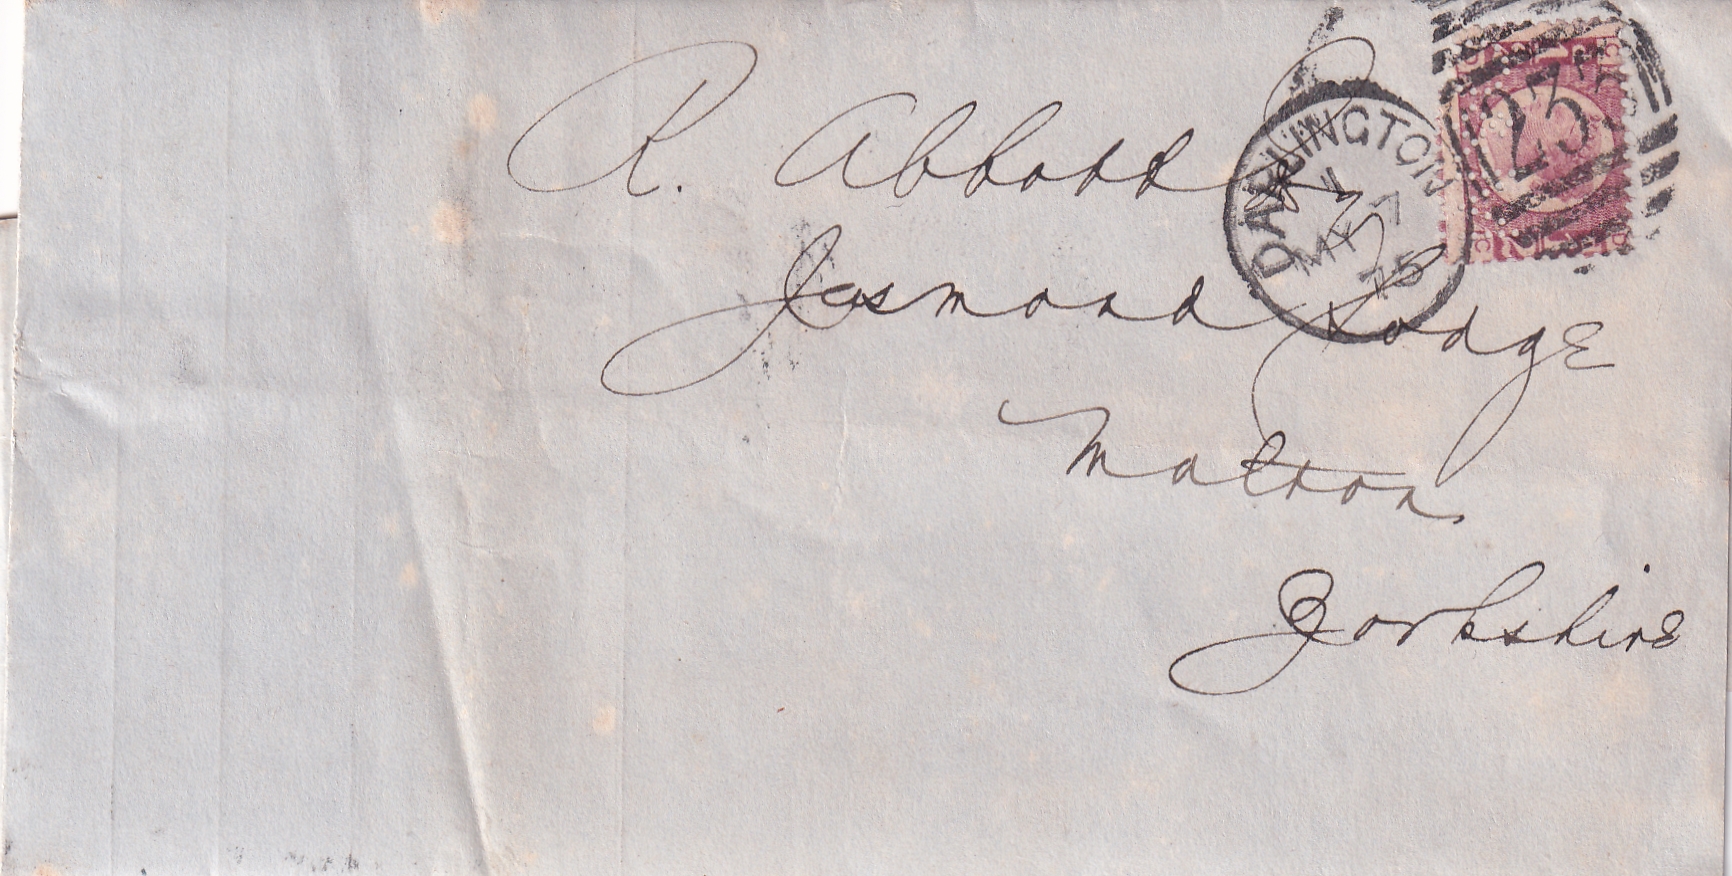 R. Abbott Esq
Jesmond Lodge
Malton
Yorkshire
DARLINGTON
MY 7
75